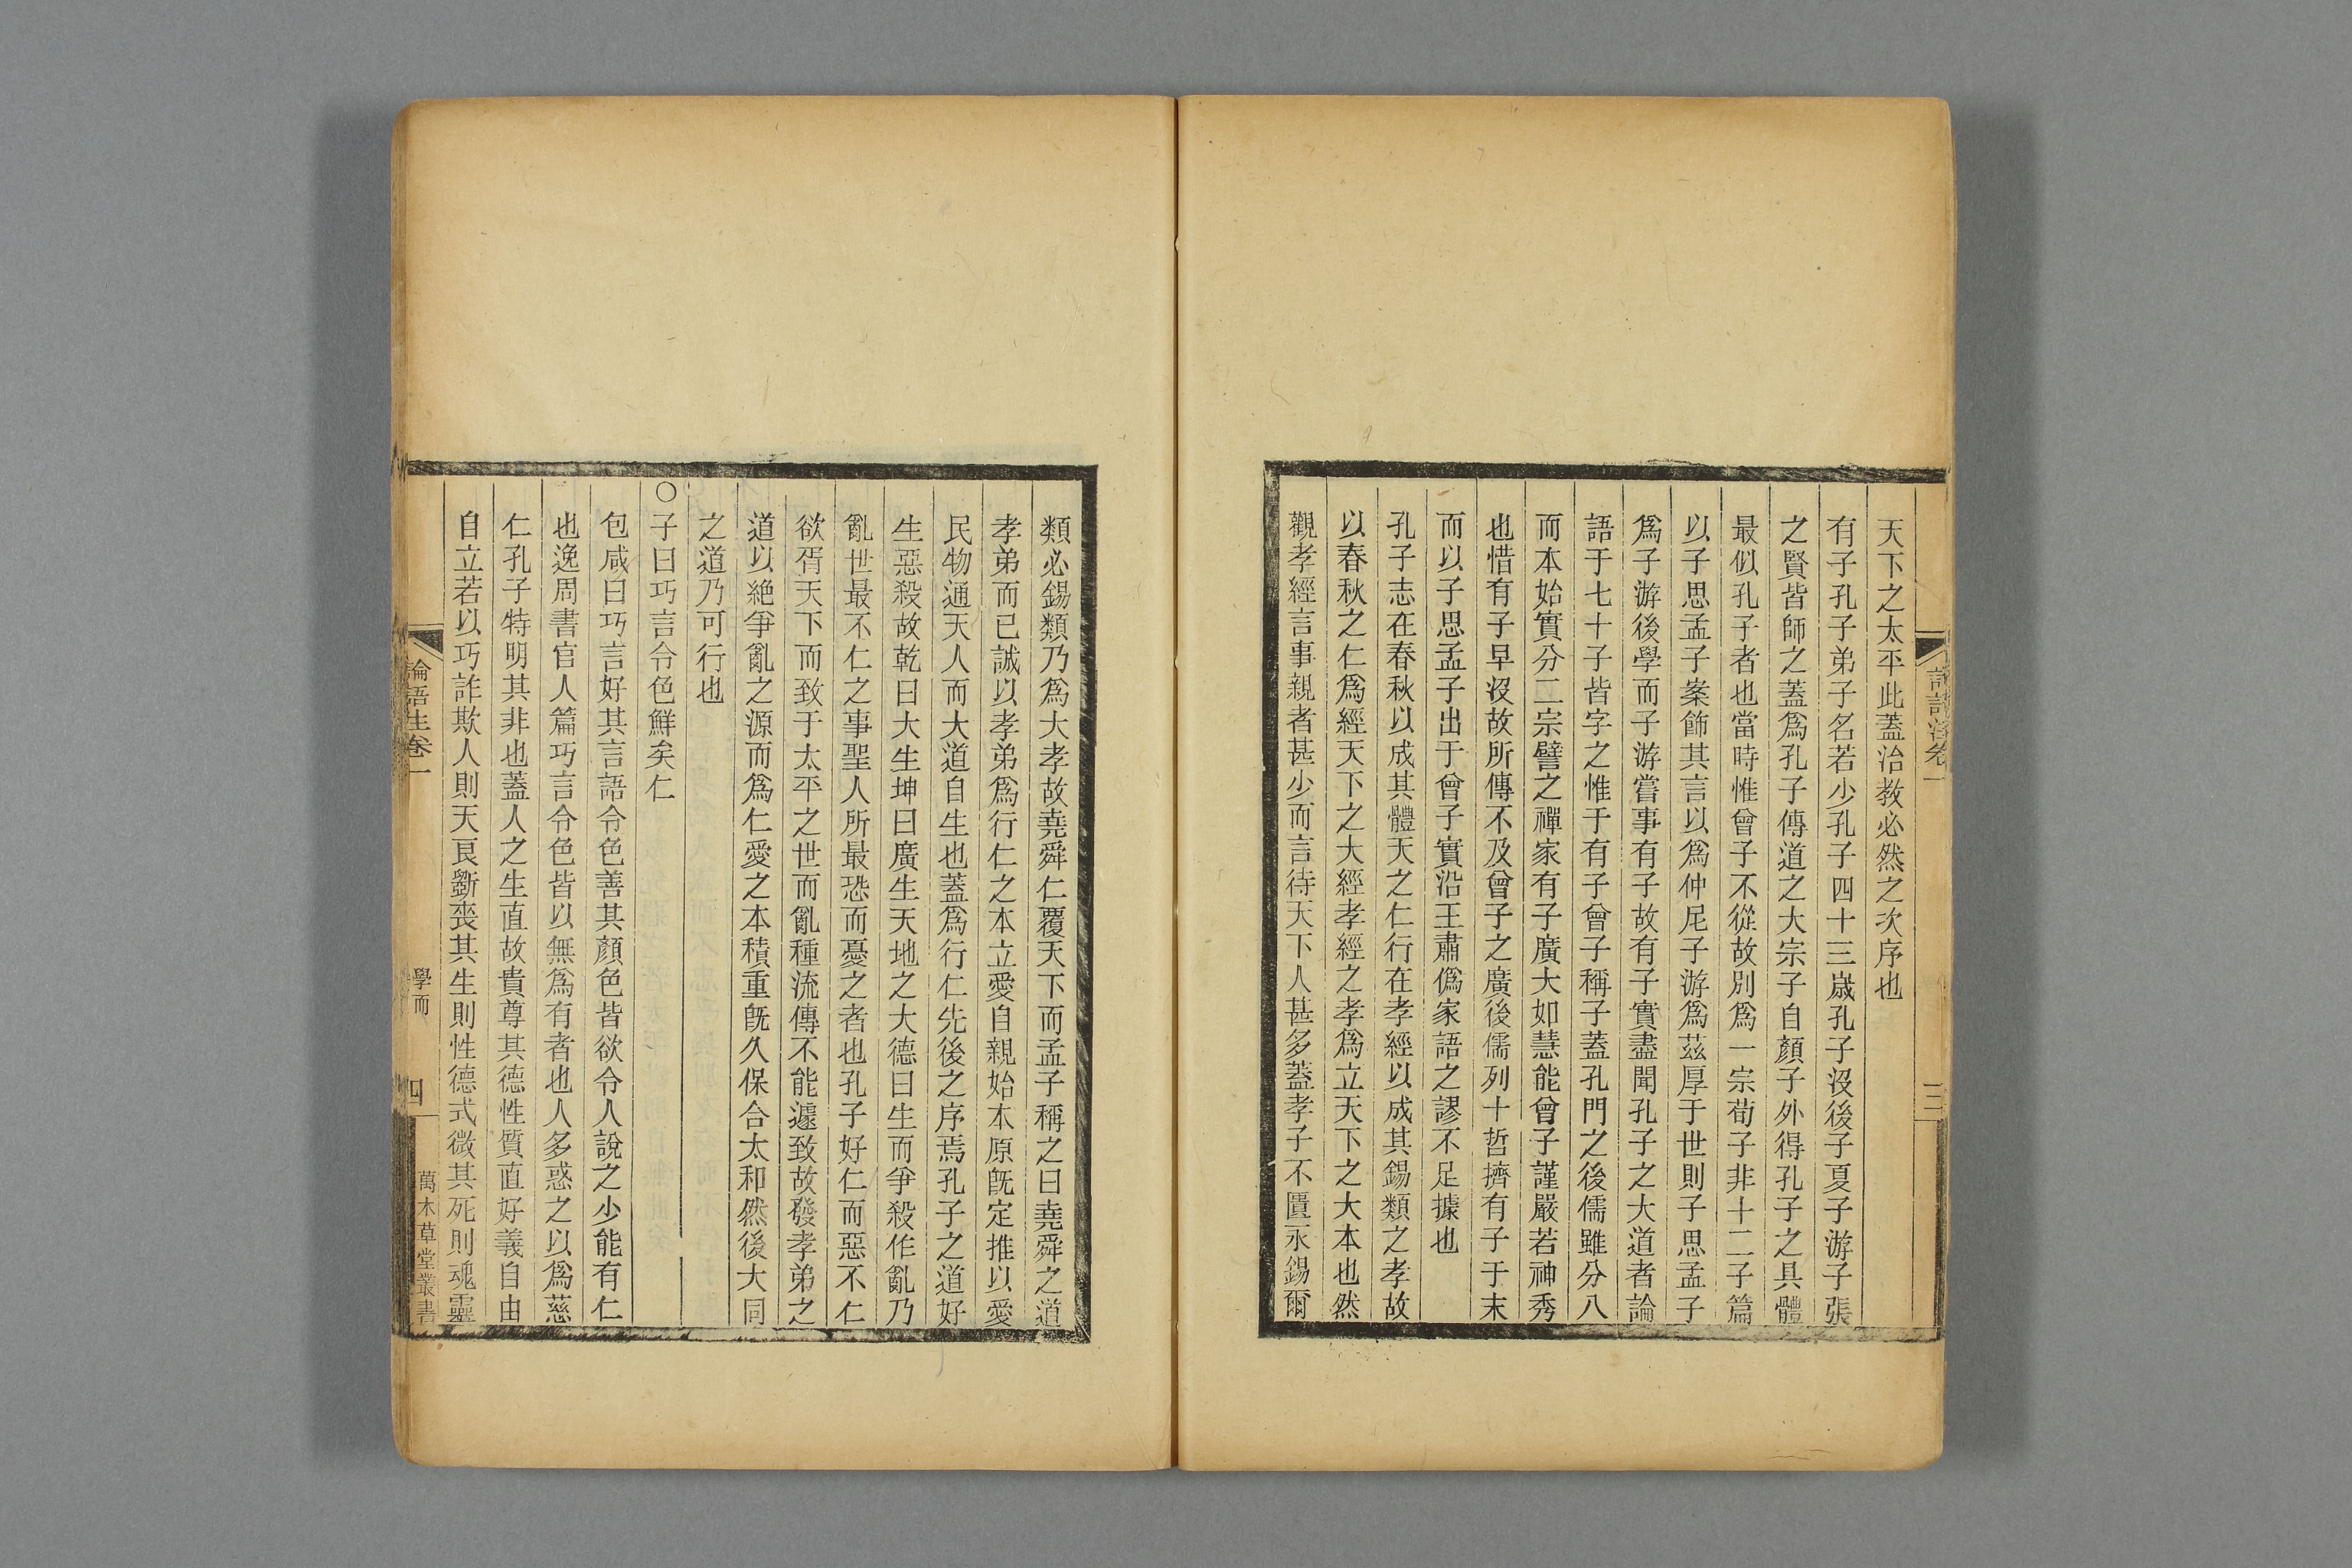 論語注卷一
三
天下之太平此蓋治教必然之次序也
有子孔子弟子名若少孔子四十三歲孔子沒後子夏子游子張
之賢皆師之蓋爲孔子傳道之大宗子自顏子外得孔子之具體
最似孔子者也當時惟曾子不從故別爲一宗荀子非十二子篇
以子思孟子案飾其言以爲仲尼子游爲茲厚于世則子思孟子
爲子游後學而子游嘗事有子故有子實盡聞孔子之大道者論
語于七十子皆字之惟于有子曾子稱子蓋孔門之後儒雖分八
而本始實分二宗譬之禪家有子廣大如慧能曾子謹嚴若神秀
也惜有子早沒故所傳不及曾子之廣後儒列十哲擠有子于末
而以子思孟子出于曾子實沿王肅僞家語之謬不足據也
孔子志在春秋以成其體天之仁行在孝經以成其錫類之孝故
以春秋之仁爲經天下之大經孝經之孝爲立天下之大本也然
觀孝經言事親者甚少而言待天下人甚多蓋孝子不匱永錫爾
類必錫類乃爲大孝故堯舜仁覆天下而孟子稱之曰堯舜之道
孝弟而已誠以孝弟爲行仁之本立愛自親始本原既定推以愛
民物通天人而大道自生也蓋爲行仁先後之序焉孔子之道好
生惡殺故乾曰大生坤曰廣生天地之大德曰生而爭殺作亂乃
亂世最不仁之事聖人所最恐而憂之者也孔子好仁而惡不仁
欲胥天下而致于太平之世而亂種流傳不能遽致故發孝弟之
道以絶爭亂之源而爲仁愛之本積重既久保合太和然後大同
之道乃可行也
○子曰巧言令色鮮矣仁
包咸曰巧言好其言語令色善其顏色皆欲令人說之少能有仁
也逸周書官人篇巧言令色皆以無爲有者也人多惑之以爲慈
仁孔子特明其非也蓋人之生直故貴尊其德性質直好義自由
自立若以巧詐欺人則天良斵喪其生則性德式微其死則魂靈
論語注卷一
學而
四
萬木草堂叢書